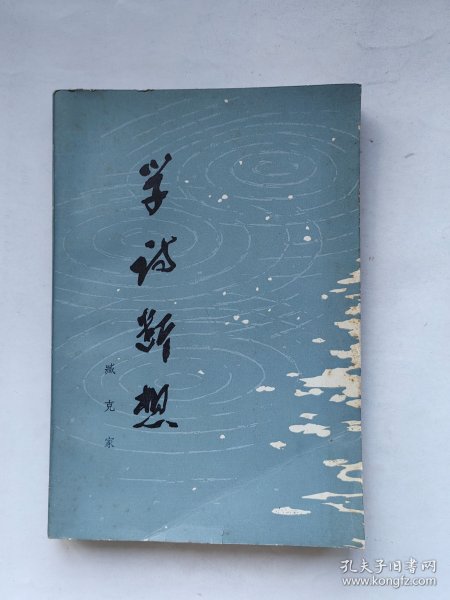 学诗断想
臧克家
孔夫子旧书网
www.kongfz.com